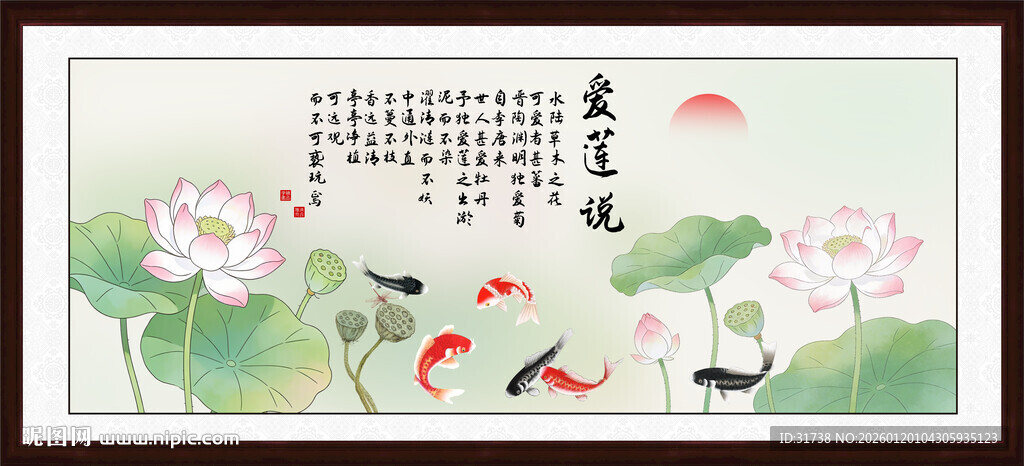 爱莲说
水陆草木之花
可爱者甚蕃
晋陶渊明独爱菊
自李唐来
世人甚爱牡丹
予独爱莲之出淤
泥而不染
濯清涟而不妖
中通外直
不蔓不枝
香远益清
亭亭净植
可远观
而不可亵玩焉
昵图网 www.nipic.com
ID:31738 NO:20260120104305935123